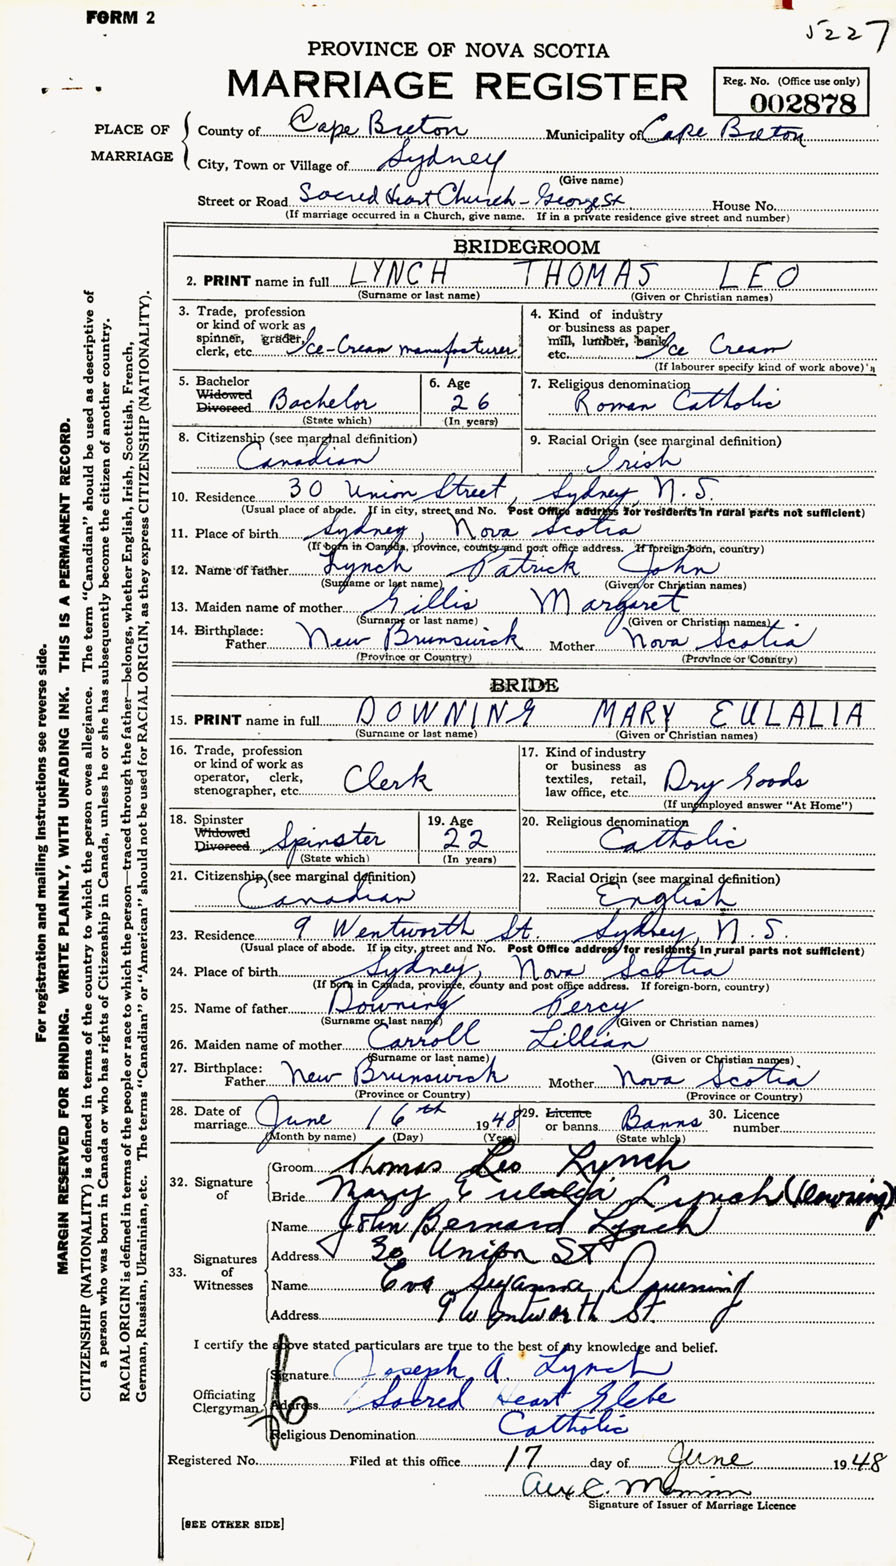 FORM 2
5227
PROVINCE OF NOVA SCOTIA
MARRIAGE REGISTER
Reg. No. (Office use only)
002878
PLACE OF MARRIAGE
County of Cape Breton Municipality of Cape Breton
City, Town or Village of Sydney
(Give name)
Street or Road Sacred Heart Church - George St. House No.
(If marriage occurred in a Church, give name. If in a private residence give street and number)
BRIDEGROOM
2. PRINT name in full LYNCH THOMAS LEO
(Surname or last name) (Given or Christian names)
3. Trade, profession
or kind of work as
spinner, grader,
clerk, etc. Ice-Cream manufacturer
4. Kind of industry
or business as paper
mill, lumber, bank,
etc. Ice Cream
(If labourer specify kind of work above)
5. Bachelor
Widowed
Divorced Bachelor
(State which)
6. Age
26
(In years)
7. Religious denomination
Roman Catholic
8. Citizenship (see marginal definition)
Canadian
9. Racial Origin (see marginal definition)
Irish
10. Residence 30 Union Street, Sydney N.S.
(Usual place of abode. If in city, street and No. Post Office address for residents in rural parts not sufficient)
11. Place of birth Sydney, Nova Scotia
(If born in Canada, province, county and post office address. If foreign-born, country)
12. Name of father Lynch Patrick John
(Surname or last name) (Given or Christian names)
13. Maiden name of mother Gillis Margaret
(Surname or last name) (Given or Christian names)
14. Birthplace:
Father New Brunswick Mother Nova Scotia
(Province or Country) (Province or Country)
BRIDE
15. PRINT name in full DOWNING MARY EULALIA
(Surname or last name) (Given or Christian names)
16. Trade, profession
or kind of work as
operator, clerk,
stenographer, etc. Clerk
17. Kind of industry
or business as
textiles, retail,
law office, etc. Dry Goods
(If unemployed answer "At Home")
18. Spinster
Widowed
Divorced Spinster
(State which)
19. Age
22
(In years)
20. Religious denomination
Catholic
21. Citizenship (see marginal definition)
Canadian
22. Racial Origin (see marginal definition)
English
23. Residence 9 Wentworth St. Sydney, N.S.
(Usual place of abode. If in city, street and No. Post Office address for residents in rural parts not sufficient)
24. Place of birth Sydney, Nova Scotia
(If born in Canada, province, county and post office address. If foreign-born, country)
25. Name of father Downing Percy
(Surname or last name) (Given or Christian names)
26. Maiden name of mother Carroll Lillian
(Surname or last name) (Given or Christian names)
27. Birthplace:
Father New Brunswick Mother Nova Scotia
(Province or Country) (Province or Country)
28. Date of
marriage June 16th 1948
(Month by name) (Day) (Year)
29. Licence
or banns Banns
(State which)
30. Licence
number
32. Signature of
Groom Thomas Leo Lynch
Bride Mary Eulalia Lynch (Downing)
33. Signatures of Witnesses
Name John Bernard Lynch
Address 30 Union St
Name Eva Suzanna Downing
Address 9 Wentworth St.
I certify the above stated particulars are true to the best of my knowledge and belief.
Officiating Clergyman
Signature Joseph A. Lynch
Address Sacred Heart Glebe
Religious Denomination Catholic
Registered No. Filed at this office 17 day of June 1948
Signature of Issuer of Marriage Licence
[SEE OTHER SIDE]
For registration and mailing instructions see reverse side.
MARGIN RESERVED FOR BINDING. WRITE PLAINLY, WITH UNFADING INK. THIS IS A PERMANENT RECORD.
CITIZENSHIP (NATIONALITY) is defined in terms of the country to which the person owes allegiance. The term "Canadian" should be used as descriptive of
a person who was born in Canada or who has rights of Citizenship in Canada, unless he or she has subsequently become the citizen of another country.
RACIAL ORIGIN is defined in terms of the people or race to which the person—traced through the father—belongs, whether English, Irish, Scottish, French,
German, Russian, Ukrainian, etc. The terms "Canadian" or "American" should not be used for RACIAL ORIGIN, as they express CITIZENSHIP (NATIONALITY).